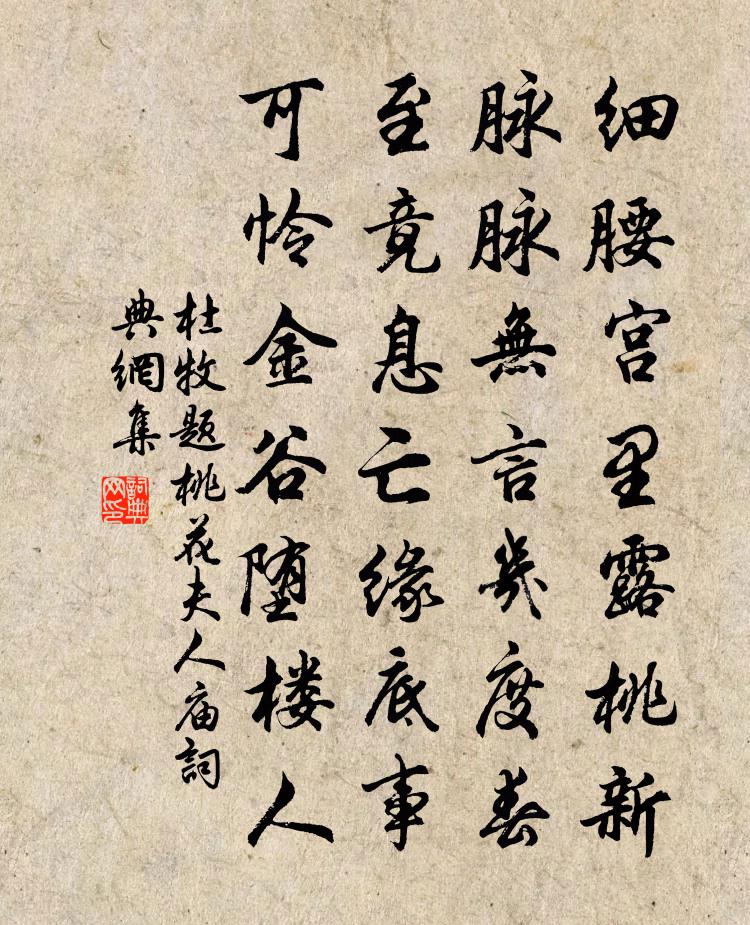 细腰宫里露桃新
脉脉無言幾度春
至竟息亡缘底事
可怜金谷堕楼人
杜牧题桃花夫人庙詞
典網集
詞典
网印